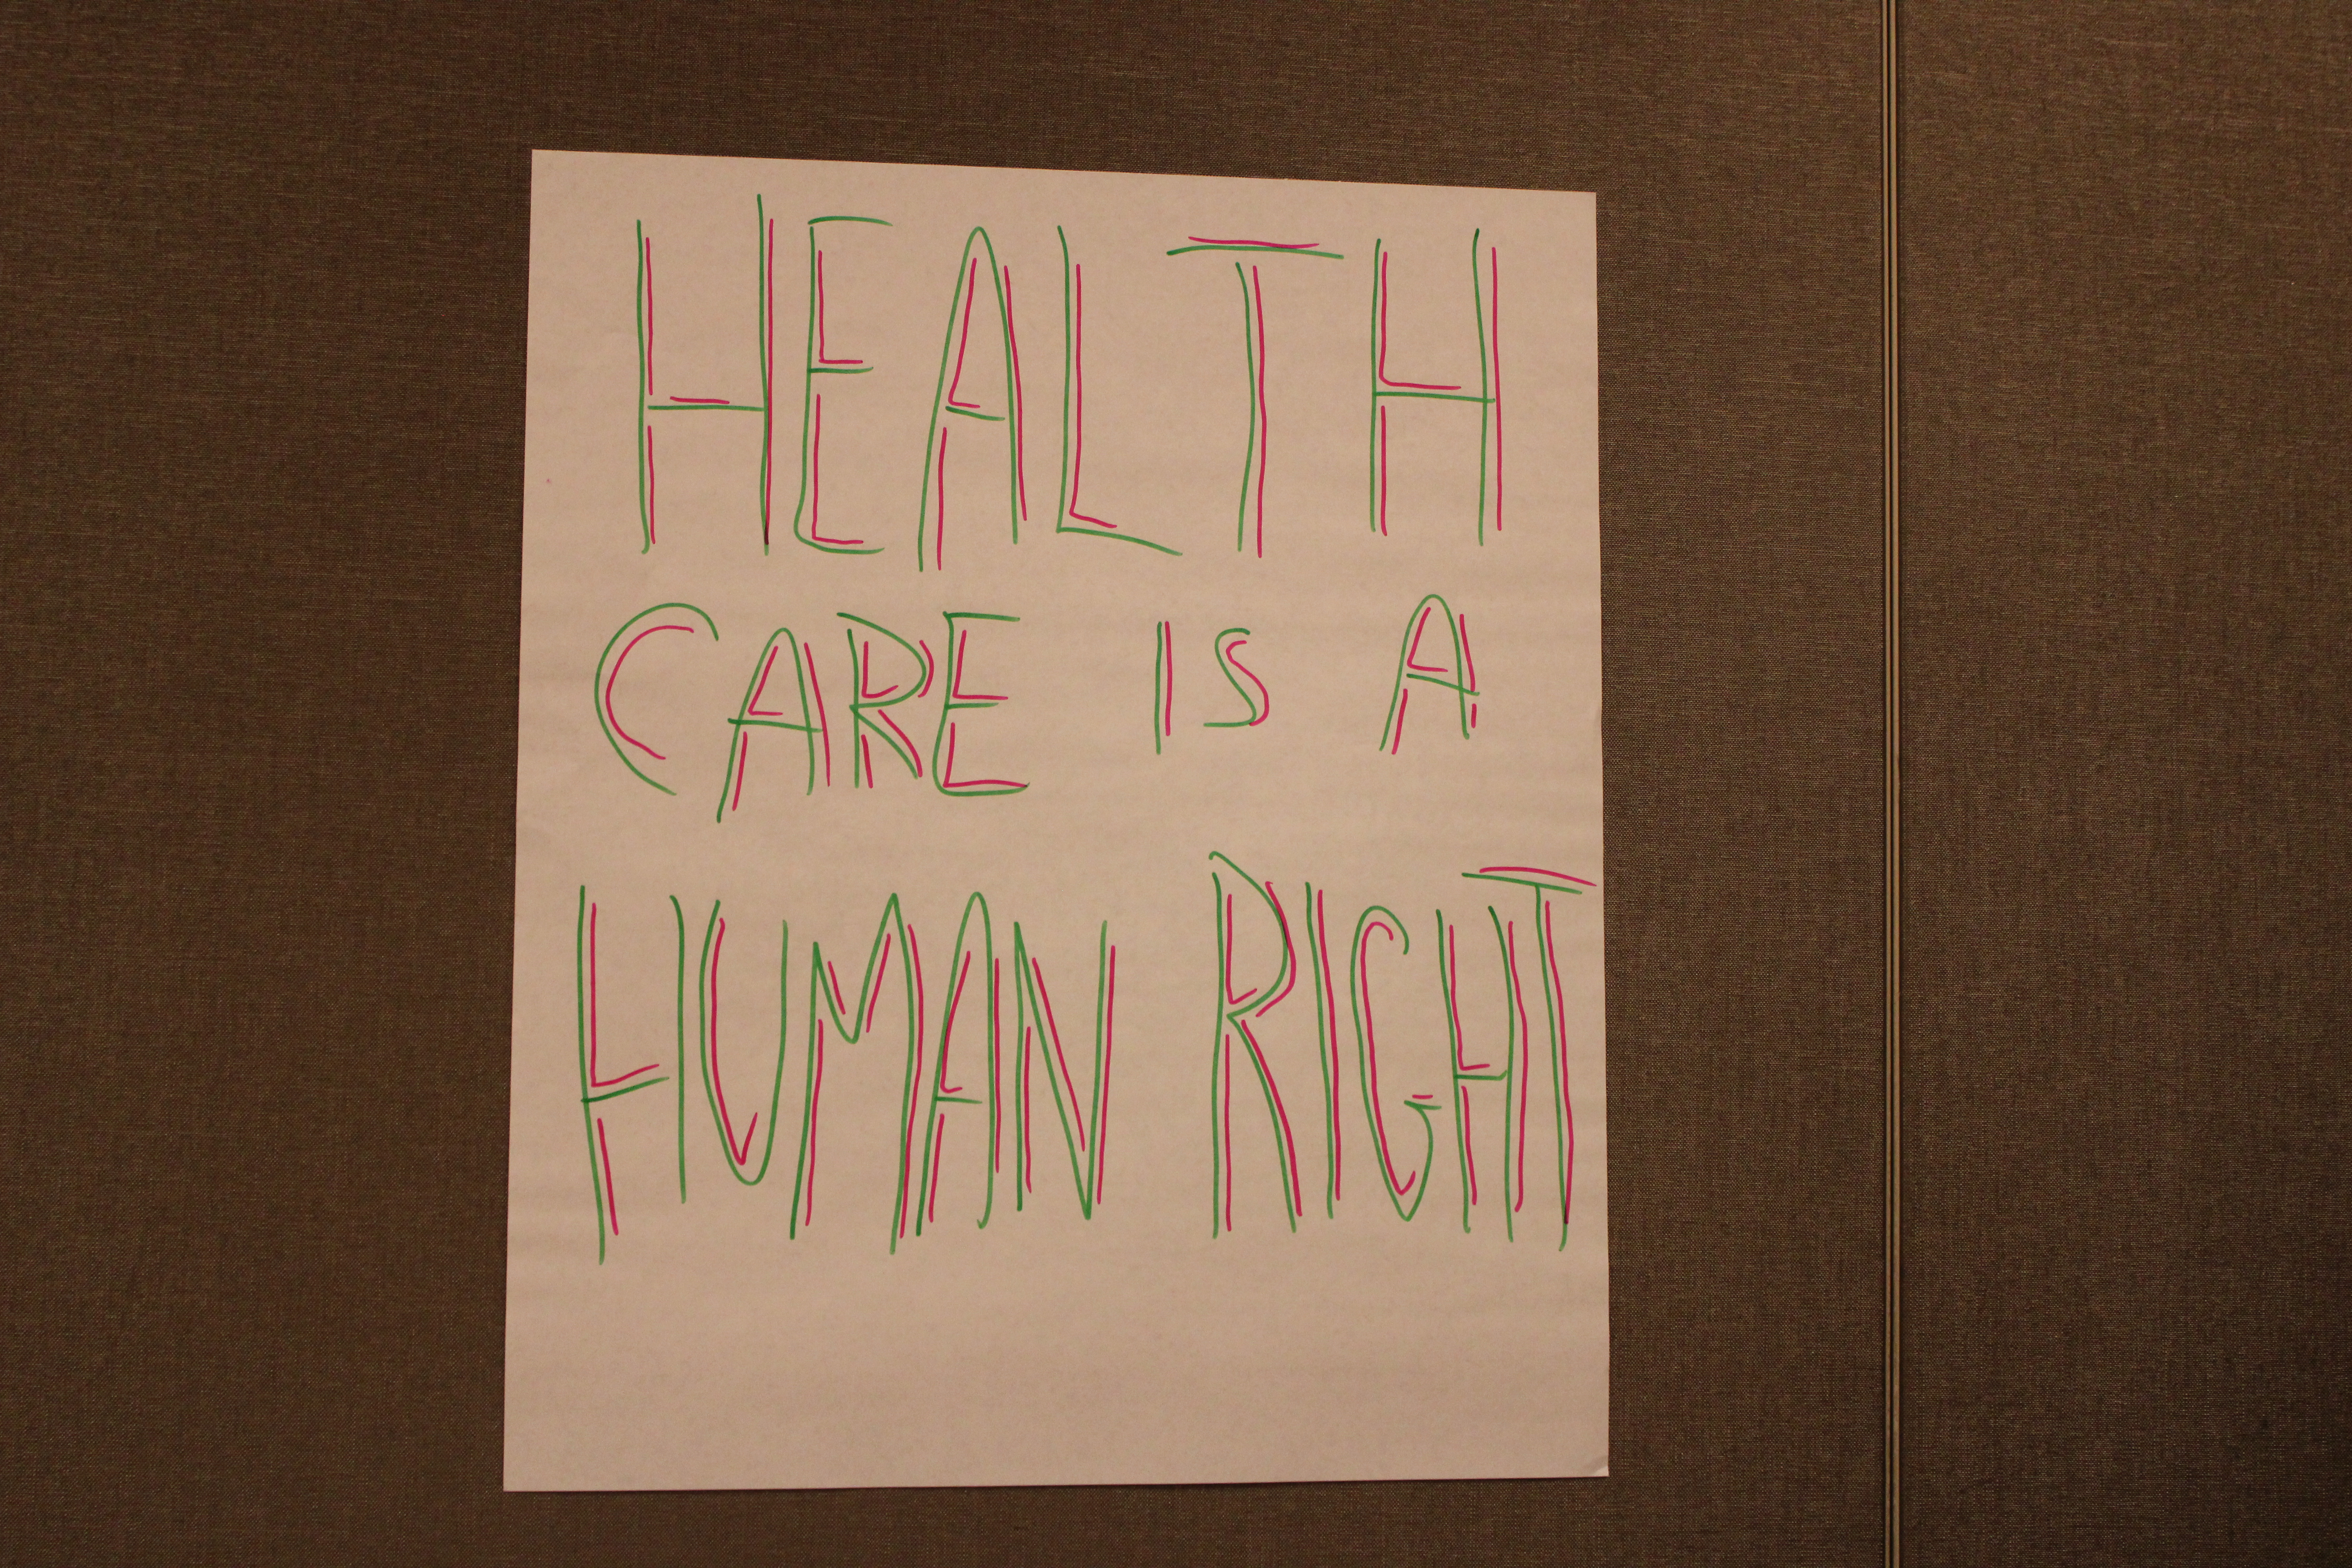 HEALTH
CARE IS A
HUMAN RIGHT